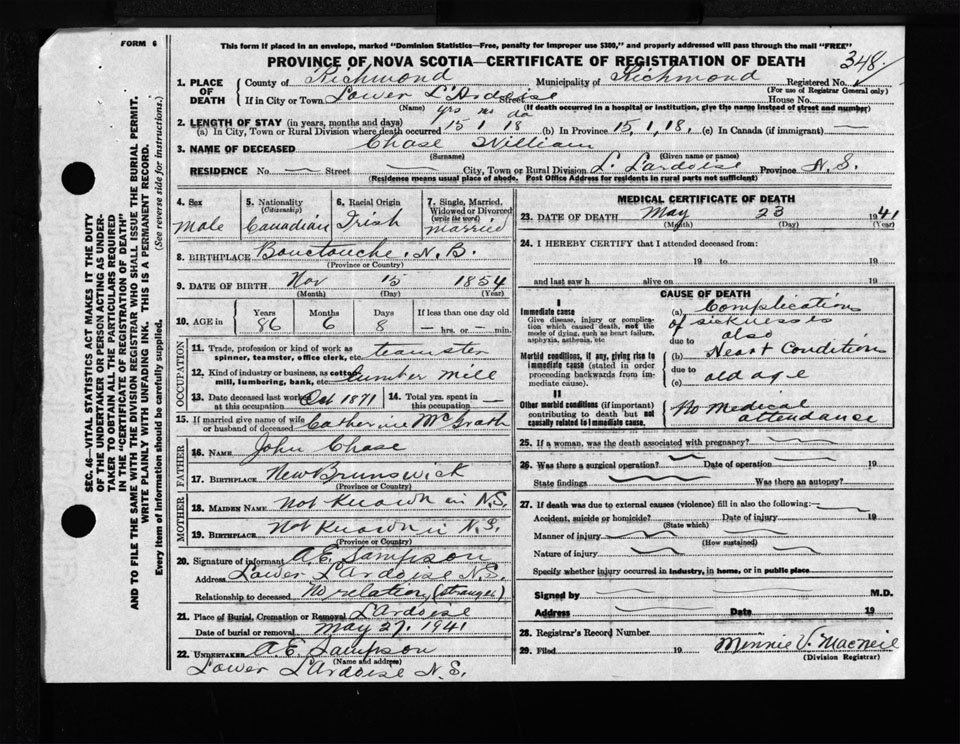 FORM 6
This form if placed in an envelope, marked "Dominion Statistics—Free, penalty for improper use $300," and properly addressed will pass through the mail "FREE"
PROVINCE OF NOVA SCOTIA—CERTIFICATE OF REGISTRATION OF DEATH
348
1. PLACE OF DEATH
County of Richmond Municipality of Richmond Registered No.
(For use of Registrar General only)
If in City or Town Lower L'Ardoise Street House No.
(Name) (If death occurred in a hospital or institution, give the name instead of street and number)
yrs mo da
2. LENGTH OF STAY (in years, months and days)
(a) In City, Town or Rural Division where death occurred 15 1 18 (b) In Province 15, 1, 18, (c) In Canada (if immigrant) —
3. NAME OF DECEASED Chase William
(Surname) (Given name or names)
RESIDENCE No. — Street — City, Town or Rural Division L. Lardoise Province N.S.
(Residence means usual place of abode. Post Office Address for residents in rural parts not sufficient)
4. Sex Male
5. Nationality (Citizenship) Canadian
6. Racial Origin Irish
7. Single, Married, Widowed or Divorced (write the word) married
8. BIRTHPLACE Bouctouche, N.B.
(Province or Country)
9. DATE OF BIRTH Nov 15 1854
(Month) (Day) (Year)
10. AGE in Years Months Days If less than one day old
86 6 8 — hrs. or — min.
OCCUPATION
11. Trade, profession or kind of work as spinner, teamster, office clerk, etc. teamster
12. Kind of industry or business, as cotton mill, lumbering, bank, etc. lumber mill
13. Date deceased last worked at this occupation Oct 1871
14. Total yrs. spent in this occupation —
15. If married give name of wife or husband of deceased Catherine McGrath
FATHER
16. NAME John Chase
17. BIRTHPLACE New Brunswick
(Province or Country)
MOTHER
18. MAIDEN NAME not Known in N.S.
19. BIRTHPLACE Not Known in N.S.
(Province or Country)
20. Signature of informant A.E. Sampson
Address Lower L'Ardoise N.S.
Relationship to deceased No relation, (stranger)
21. Place of Burial, Cremation or Removal L'Ardoise
Date of burial or removal May 27, 1941
22. UNDERTAKER A.E. Sampson
(Name and address)
Lower L'Ardoise N.S.
MEDICAL CERTIFICATE OF DEATH
23. DATE OF DEATH May 23 1941
(Month) (Day) (Year)
24. I HEREBY CERTIFY that I attended deceased from:
19 to 19
and last saw h alive on 19
CAUSE OF DEATH
I
Immediate cause
Give disease, injury or complication which caused death, not the mode of dying, such as heart failure, asphyxia, asthenia, etc
(a) Complication of sickness
due to also
Morbid conditions, if any, giving rise to immediate cause (stated in order proceeding backwards from immediate cause).
(b) Heart Condition
due to
(c) old age
II
Other morbid conditions (if important) contributing to death but not causally related to immediate cause.
No Medical attendance
25. If a woman, was the death associated with pregnancy?
26. Was there a surgical operation? Date of operation 19
State findings Was there an autopsy?
27. If death was due to external causes (violence) fill in also the following:
Accident, suicide or homicide? Date of injury 19
(State which)
Manner of injury
(How sustained)
Nature of injury
Specify whether injury occurred in industry, in home, or in public place
Signed by M.D.
Address Date 19
28. Registrar's Record Number
29. Filed 19 Minnie V. MacNeil
(Division Registrar)
SEC. 46—VITAL STATISTICS ACT MAKES IT THE DUTY
OF THE UNDERTAKER OR PERSON ACTING AS UNDER-
TAKER TO OBTAIN ALL THE PARTICULARS REQUIRED
IN THE "CERTIFICATE OF REGISTRATION OF DEATH"
AND TO FILE THE SAME WITH THE DIVISION REGISTRAR WHO SHALL ISSUE THE BURIAL PERMIT.
WRITE PLAINLY WITH UNFADING INK. THIS IS A PERMANENT RECORD.
Every item of information should be carefully supplied. (See reverse side for instructions.)